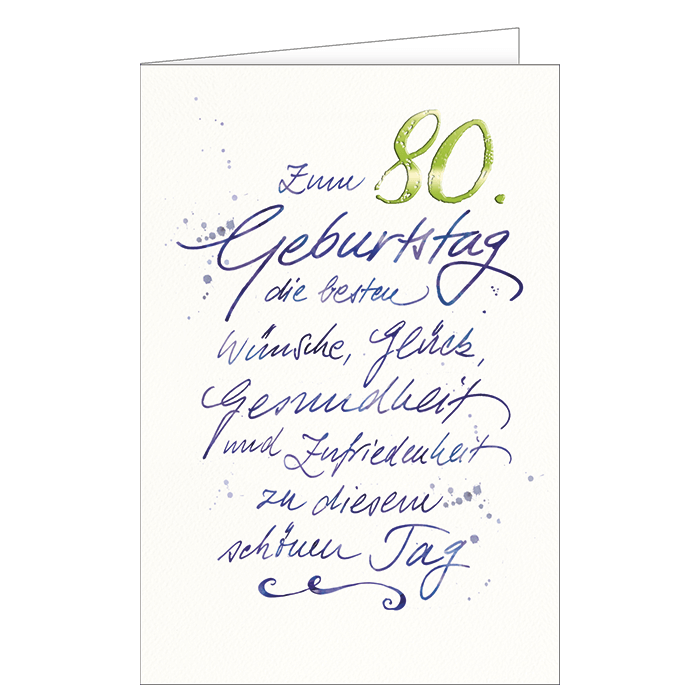 Zum 80.
Geburtstag
die besten
Wünsche, Glück,
Gesundheit
und Zufriedenheit
zu diesem
schönen Tag